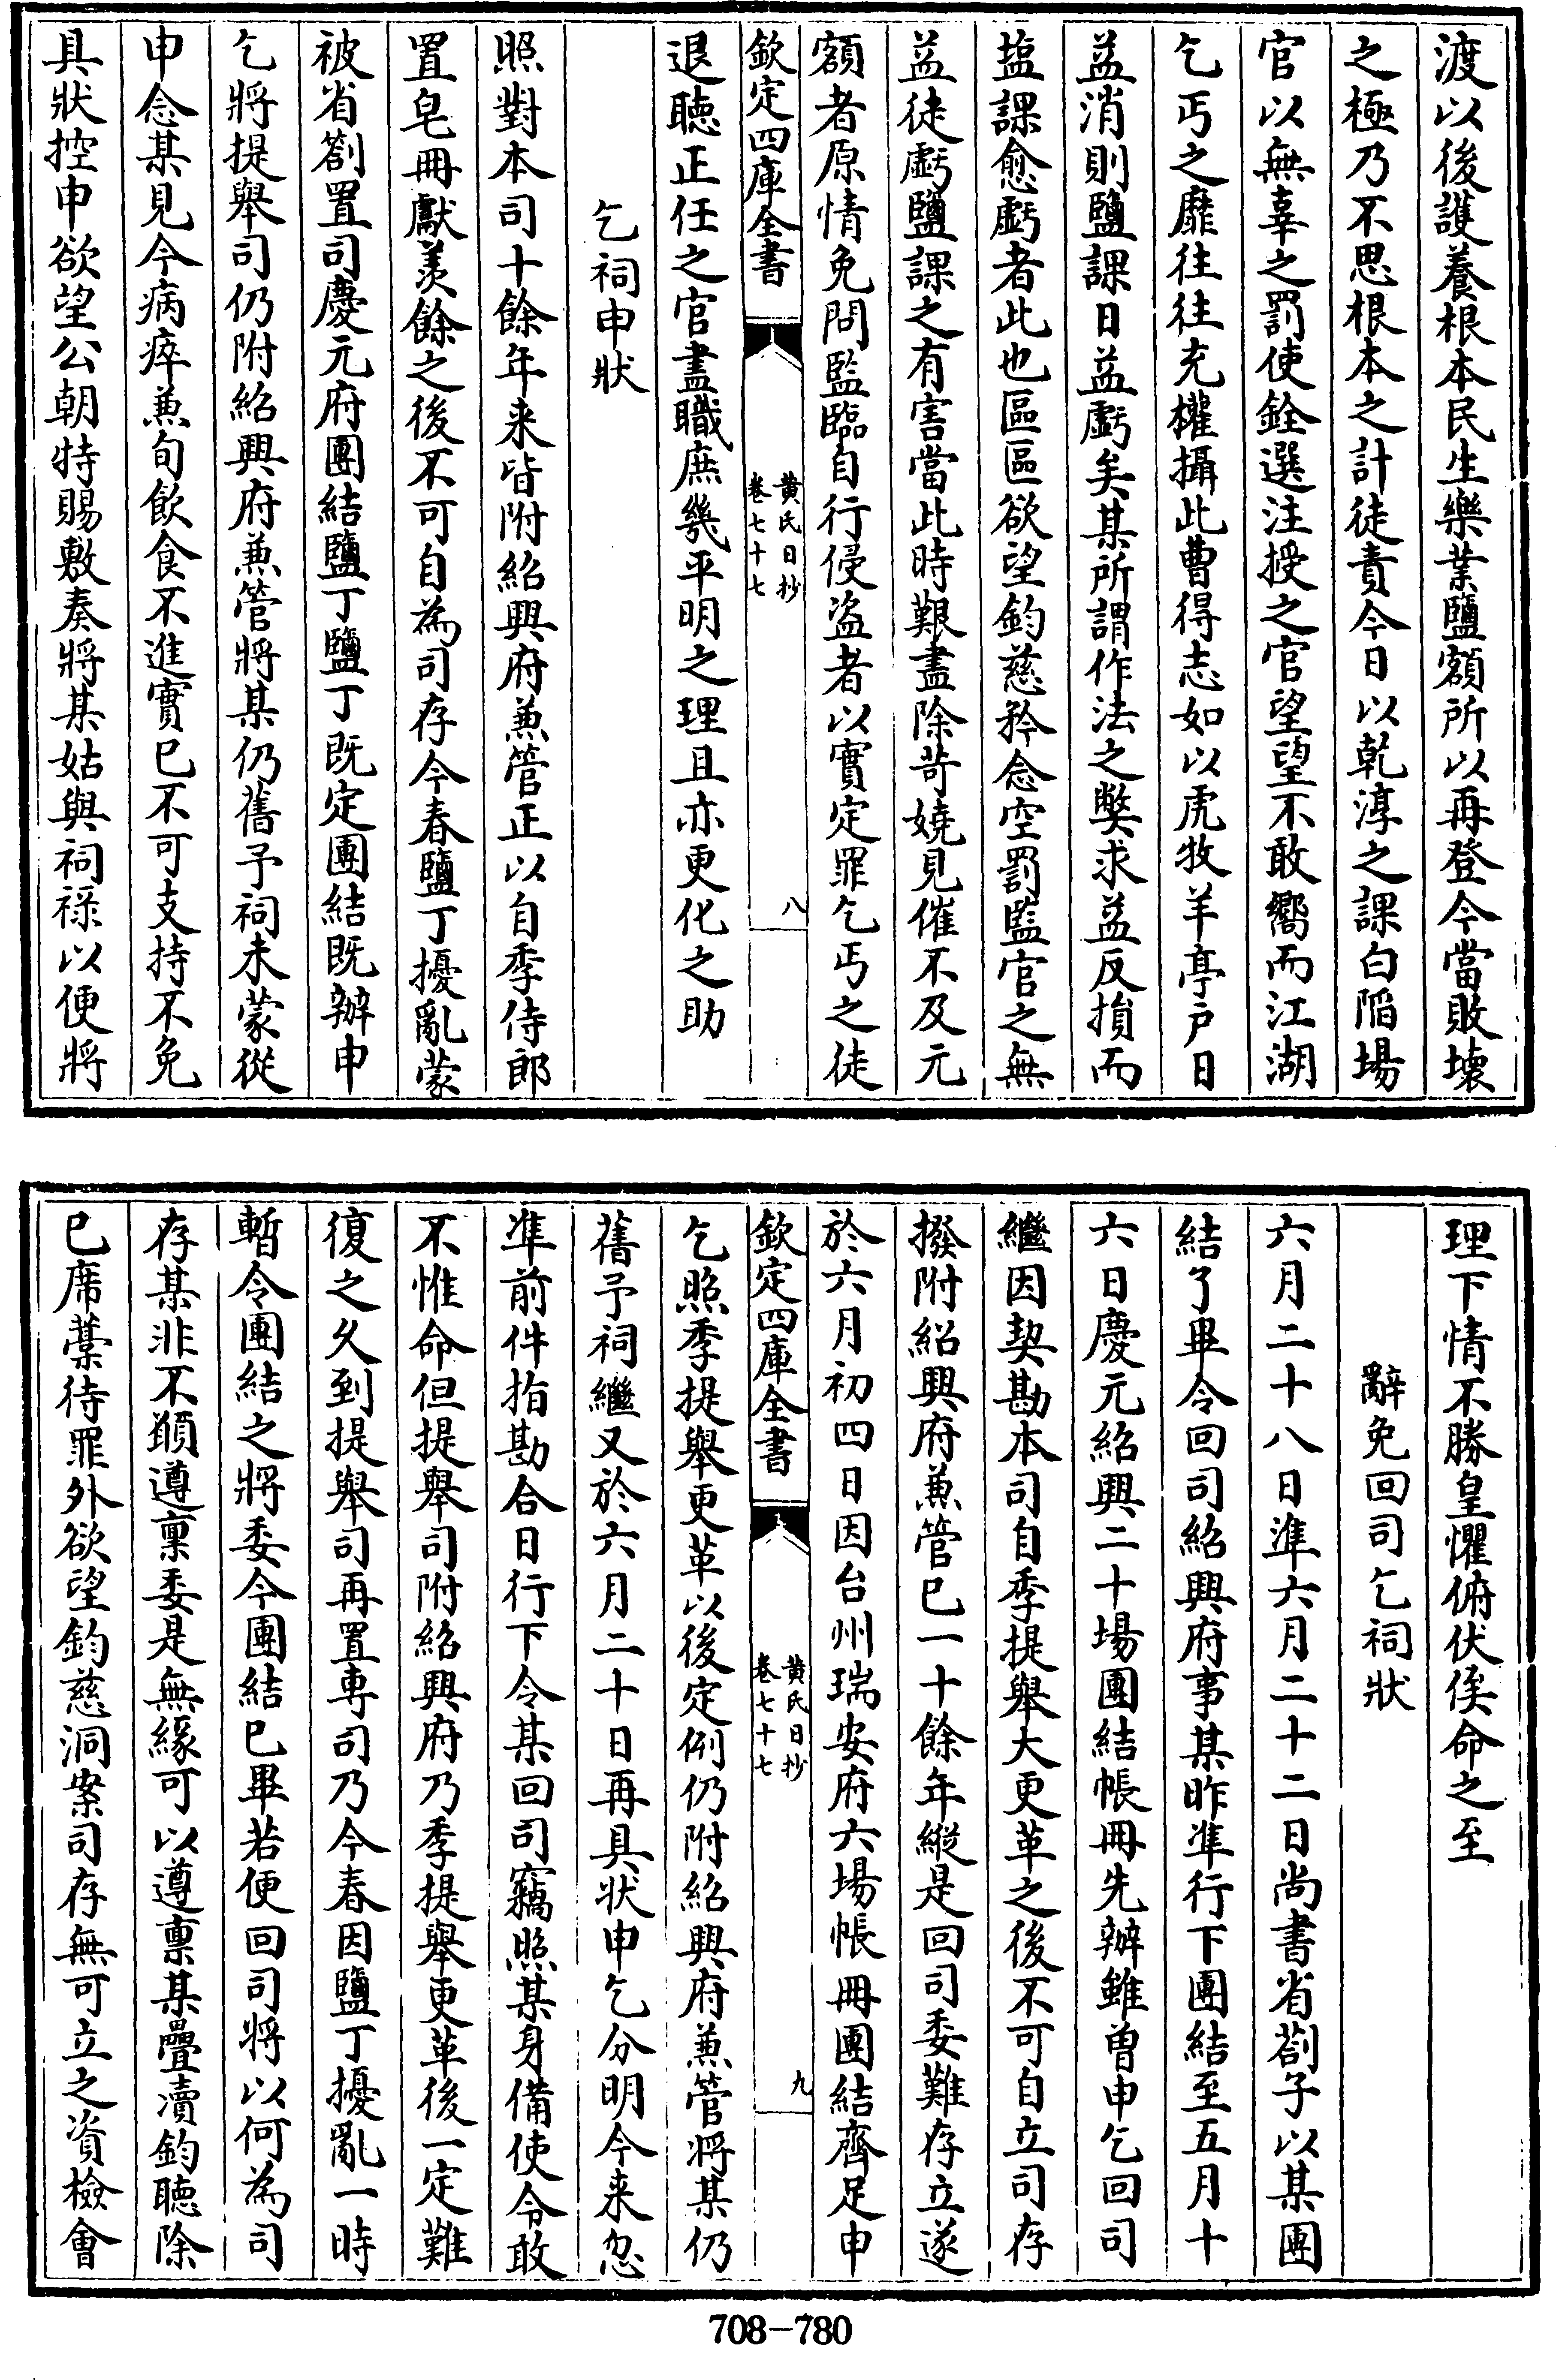 渡以後護養根本民生樂業鹽額所以再登今當敗壞
之極乃不思根本之計徒責今日以乾淳之課白陷場
官以無辜之罰使銓選注授之官望望不敢嚮而江湖
乞丐之靡往往充權攝此曹得志如以虎牧羊亭户日
益消則鹽課日益虧矣某所謂作法之弊求益反損而
塩課愈虧者此也區區欲望鈞慈矜念空罰監官之無
益徒虧鹽課之有害當此時艱盡除苛嬈見催不及元
額者原情免問監臨自行侵盗者以實定罪乞丐之徒
欽定四庫全書
黄氏日抄
卷七十七
八
退聽正任之官盡職庶幾平明之理且亦更化之助
乞祠申狀
照對本司十餘年来皆附紹興府兼管正以自季侍郎
置皂冊獻羨餘之後不可自為司存今春鹽丁擾亂蒙
被省劄置司慶元府團結鹽丁鹽丁既定團結既辦申
乞將提舉司仍附紹興府兼管將某仍舊予祠未蒙從
申念某見今病瘁兼旬飲食不進實已不可支持不免
具狀控申欲望公朝特賜敷奏將某姑與祠禄以便將
理下情不勝皇懼俯伏俟命之至
辭免回司乞祠狀
六月二十八日準六月二十二日尚書省劄子以某團
結了畢令回司紹興府事某昨準行下團結至五月十
六日慶元紹興二十場團結帳冊先辦雖曽申乞回司
繼因契勘本司自季提舉大更革之後不可自立司存
撥附紹興府兼管已一十餘年縱是回司委難存立遂
於六月初四日因台州瑞安府六場帳冊團結齊足申
欽定四庫全書
黄氏日抄
卷七十七
九
乞照季提舉更革以後定例仍附紹興府兼管將某仍
舊予祠繼又於六月二十日再具状申乞分明今来忽
準前件指勘合日行下令某回司竊照某身備使令敢
不惟命但提舉司附紹興府乃季提舉更革後一定難
復之久到提舉司再置専司乃今春因鹽丁擾亂一時
暫令團結之將委今團結已畢若便回司將以何為司
存某非不願遵稟委是無緣可以遵禀某疊瀆鈞聽除
已席藁待罪外欲望鈞慈洞案司存無可立之資檢會
708-780